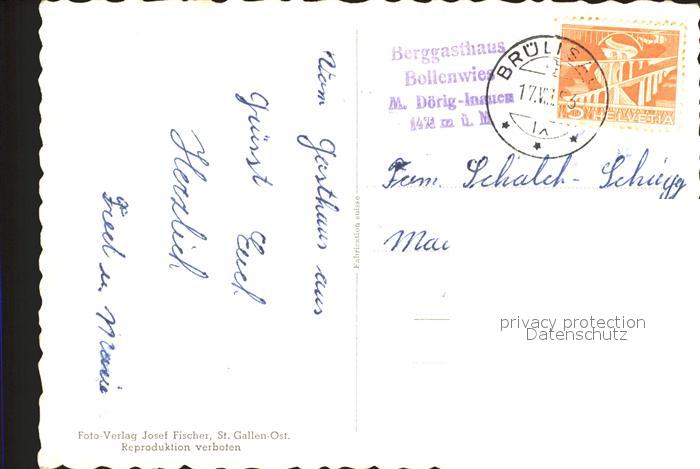 Vom Gasthaus aus
Grüsst Euch
Herzlich
Fredi u. Marie
Foto-Verlag Josef Fischer, St. Gallen-Ost.
Reproduktion verboten
Fabrication suisse
Berggasthaus
Bollenwies
M. Dörig-Inauen
1471 m ü. M.
BRÜLIS
17.VII.
IX
5 HELVETIA
Fam. Schalch - Schügg
Mai
privacy protection
Datenschutz